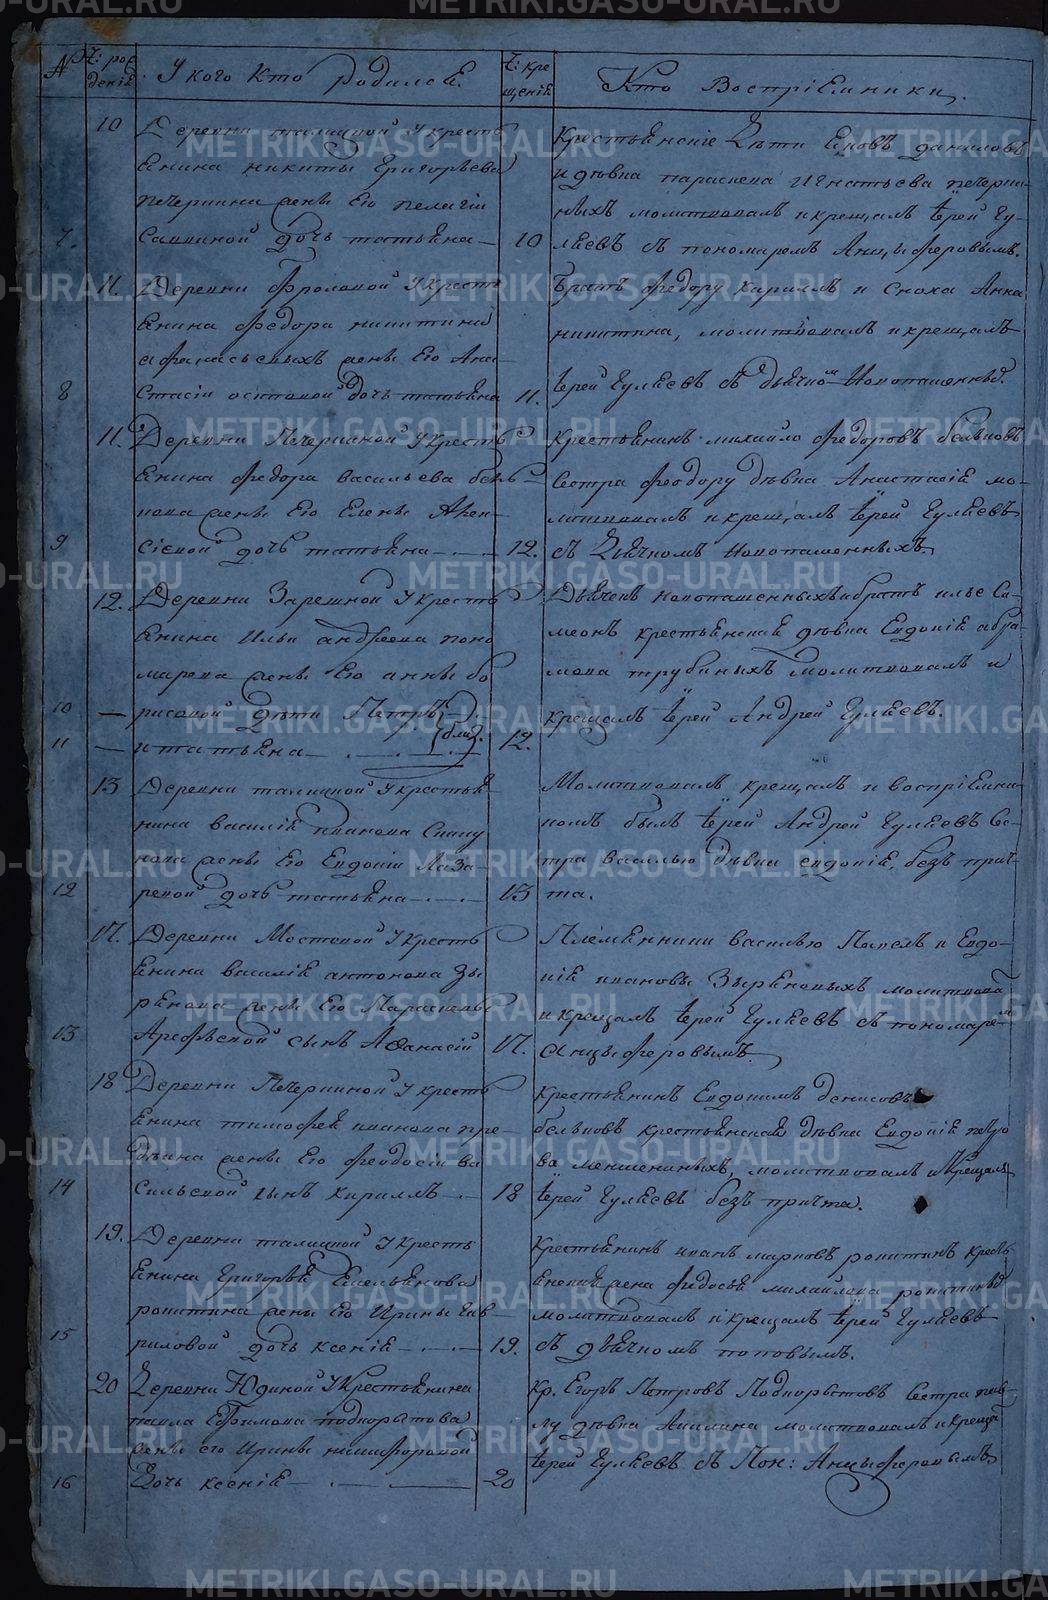 №
Ч: рож
деній
У кого кто родился.
Ч: кре
щеній
Кто Воспріемники.
10
Деревни талицкой У кресть
янина никиты Григорьева
печеркина жены его пелагіи
7. Саввиной дочь татьяна
10
Крестьянскіе Дѣти
и дѣвка параскева Игнатьева печерки-
ныхъ молитвовалъ и крещалъ Іерей Гу-
ляевъ съ пономаремъ Анцыферовымъ.
11. Деревни Фроловой У кресть
янина Федора никитина
Афанасьевыхъ жены его Ана-
8 стасіи осиповой дочь татьяна
11.
Братъ Федору Кириллъ и Сноха Анна
никитина, молитвовалъ и крещалъ
Іерей Гуляевъ съ дьячкомъ Новопашеннымъ.
11. Деревни Печеркиной У кресть
янина Федора васильева бель
кова жены его Елены Авен-
9 сіевой дочь татьяна
12.
Крестьянинъ михайло Федоровъ бельковъ
Сестра Феодору дѣвка Анастасія мо-
литвовалъ и крещалъ Іерей Гуляевъ
съ Дьячкомъ Новопашенныхъ
12. Деревни Зарешной У кресть
янина Ильи андреева поно
марева жены его анны бо
10 рисовой дѣти Петръ
11 и татьяна
близ.
12.
Дьячекъ новопашенныхъ братъ илье Си-
меонъ крестьянская дѣвка Евдокія абра-
мова трубиныхъ молитвовалъ и
крещалъ Іерей Андрей Гуляевъ.
13 Деревни талицкой У крестья
нина василія иванова Спицу
нова жены его Евдокіи Лаза-
12 ревой дочь татьяна
13
Молитвовалъ крещалъ и воспріемни-
комъ былъ Іерей Андрей Гуляевъ Се-
стра василью дѣвка евдокія, безъ прич-
та.
17. Деревни Мостовой У кресть
янина василія антонова Зы
рянова жены его Параскевы
13 Арефьевой сынъ Афанасій
17.
Племянники василью Павелъ и Евдо-
кія ивановы Зыряновыхъ молитвова
и крещалъ Іерей Гуляевъ съ пономаремъ
Анцыферовымъ.
18 Деревни Печеркиной У кресть
янина тимофея иванова пре-
деина жены его Феодосіи ва
14 сильевой сынъ Кириллъ
18
Крестьянинъ Евдокимъ денисовъ
бельковъ крестьянская дѣвка Евдокія петро
ва меншениныхъ, молитвовалъ и Крещалъ
Іерей Гуляевъ безъ причта.
19. Деревни талицкой У кресть
янина Григорья Емельянова
ропитина жены его Ирины Гав-
15 риловой дочь ксенія
19.
Крестьянинъ иванъ марковъ ропитинъ крест
янская жена Федосья михайлова ропитиныхъ
молитвовалъ и крещалъ Іерей Гуляевъ
съ дьячкомъ поповымъ.
20 Деревни Юдиной У Крестьянина
павла Ефимова подкорытова
жены его Ирины никифоровой
16 Дочь ксенія
20
Кр. Егоръ Петровъ Подкорытовъ Сестра пав-
лу дѣвка Акилина молитвовалъ и креща
Іерей Гуляевъ съ Пон: Анцыферовымъ
METRIKI.GASO-URAL.RU